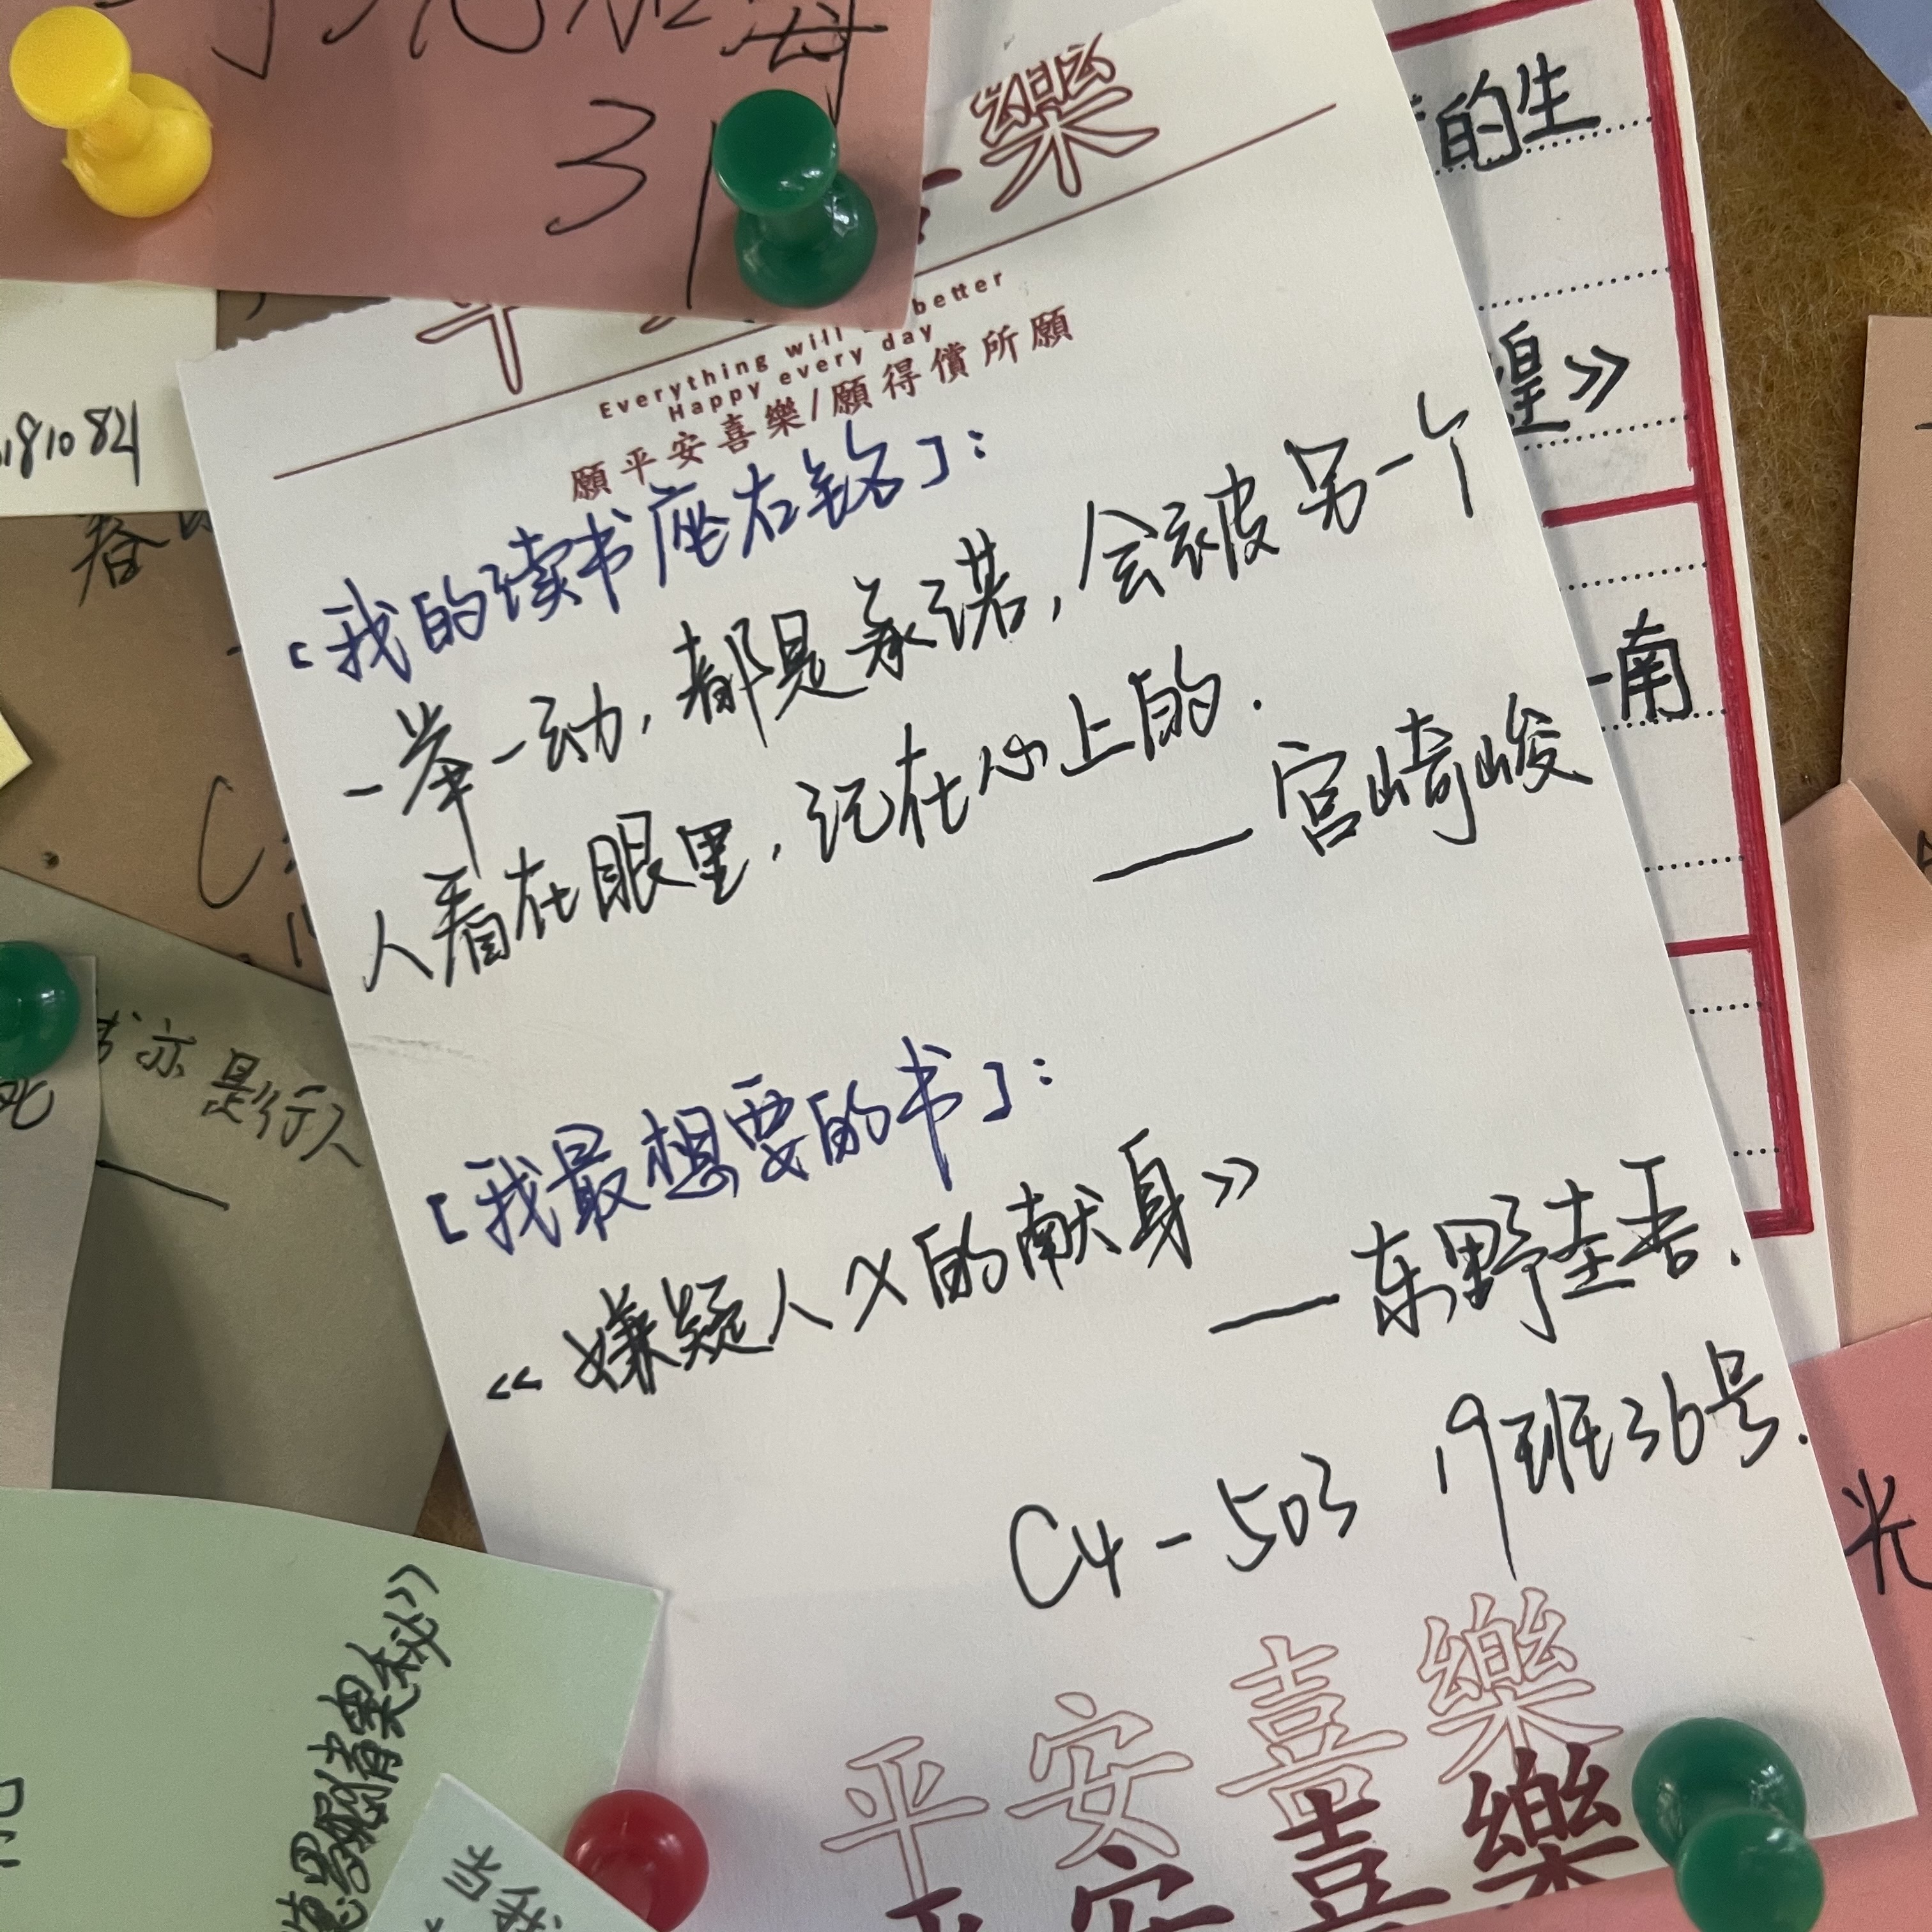 31
樂
Everything will better
Happy every day
願平安喜樂/願得償所願
[我的读书座右铭]:
一举一动,都是承诺,会被另一个
人看在眼里,记在心上的.
——宫崎峻
[我最想要的书]:
《嫌疑人X的献身》
——东野圭吾.
C4-503 19班36号.
平安喜樂
平安喜樂
的生
煌》
一南
181084
春
书亦是行人
光
德思騙督奥秘》
有
我